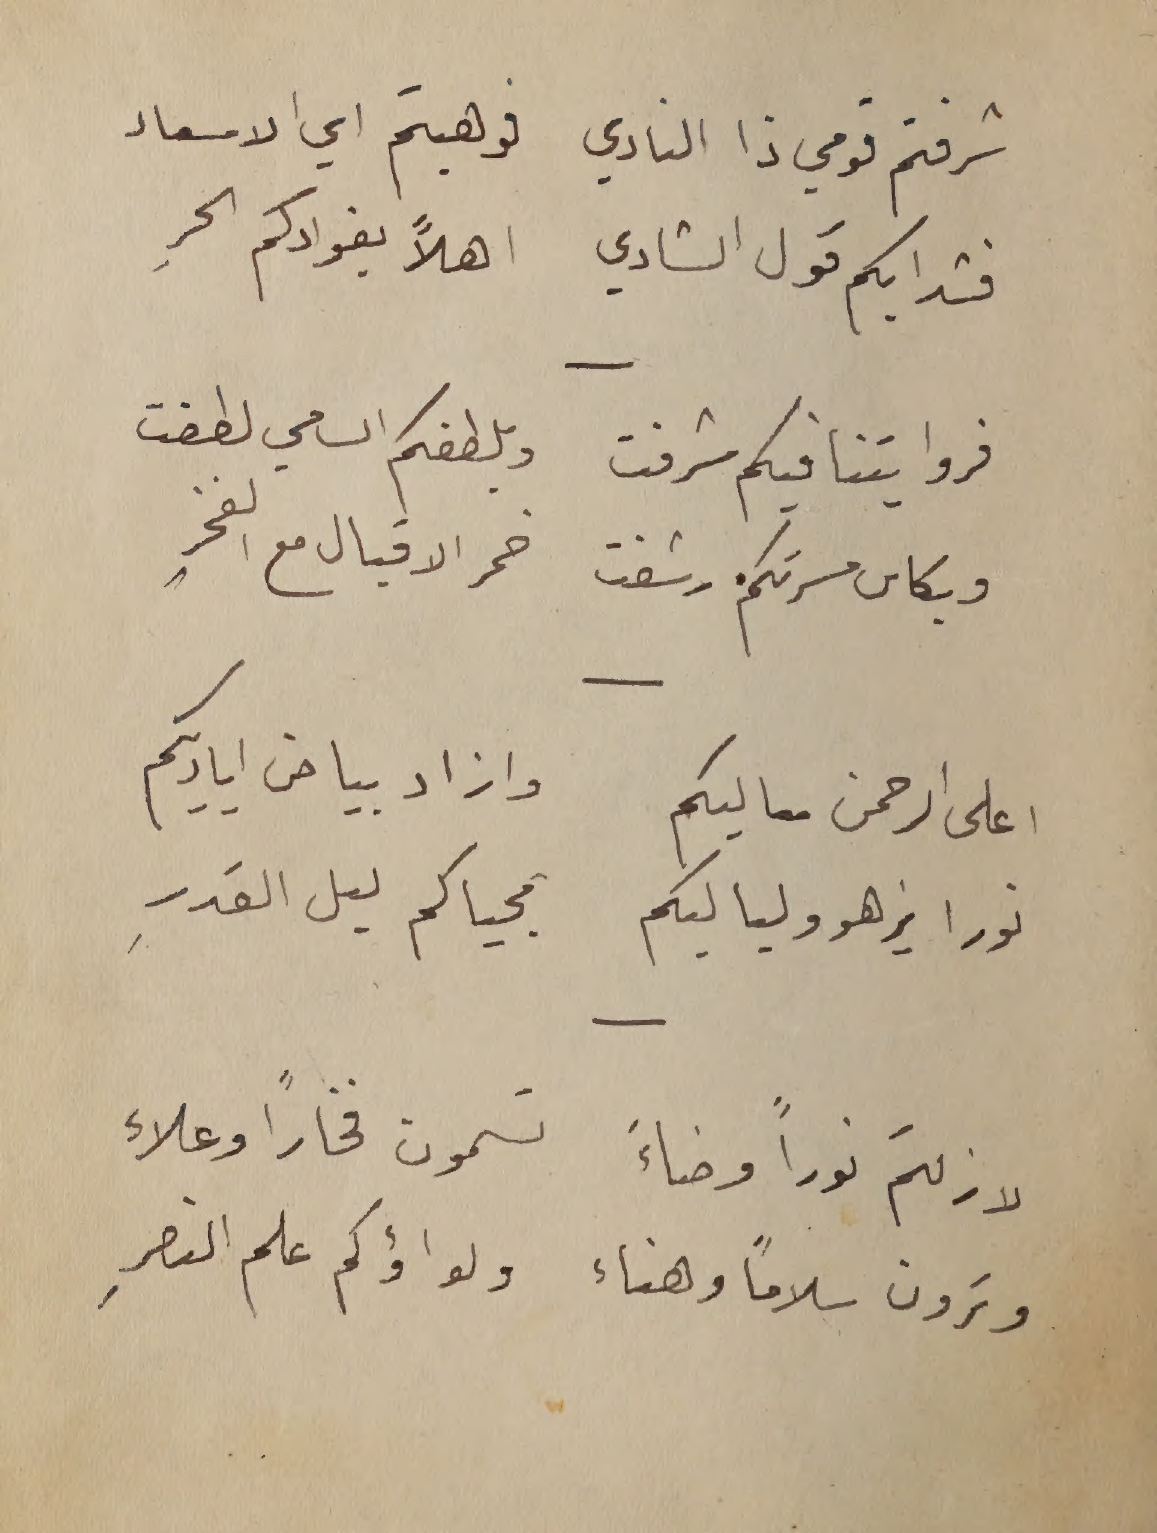 شرفتم قومي ذا النادي فوهبتم اي الاسعاد
فشدا بكم قول الشادي اهلاً بفوادكم الحرِ
—
فروايتنا فيكم شرفت وبلطفكم السامي لطفت
وبكاس مسرتكم رشفت خمر الاقبال مع الفخرِ
—
اعلى الرحمن معاليكم وازاد بياض اياديكم
نورا يزهو ولياليكم تحياكم ليل القدرِ
—
لازلتم نوراً وضاءً تسمون فخاراً وعلاء
وترون سلاماً وهناء ولواؤكم علم النصرِ